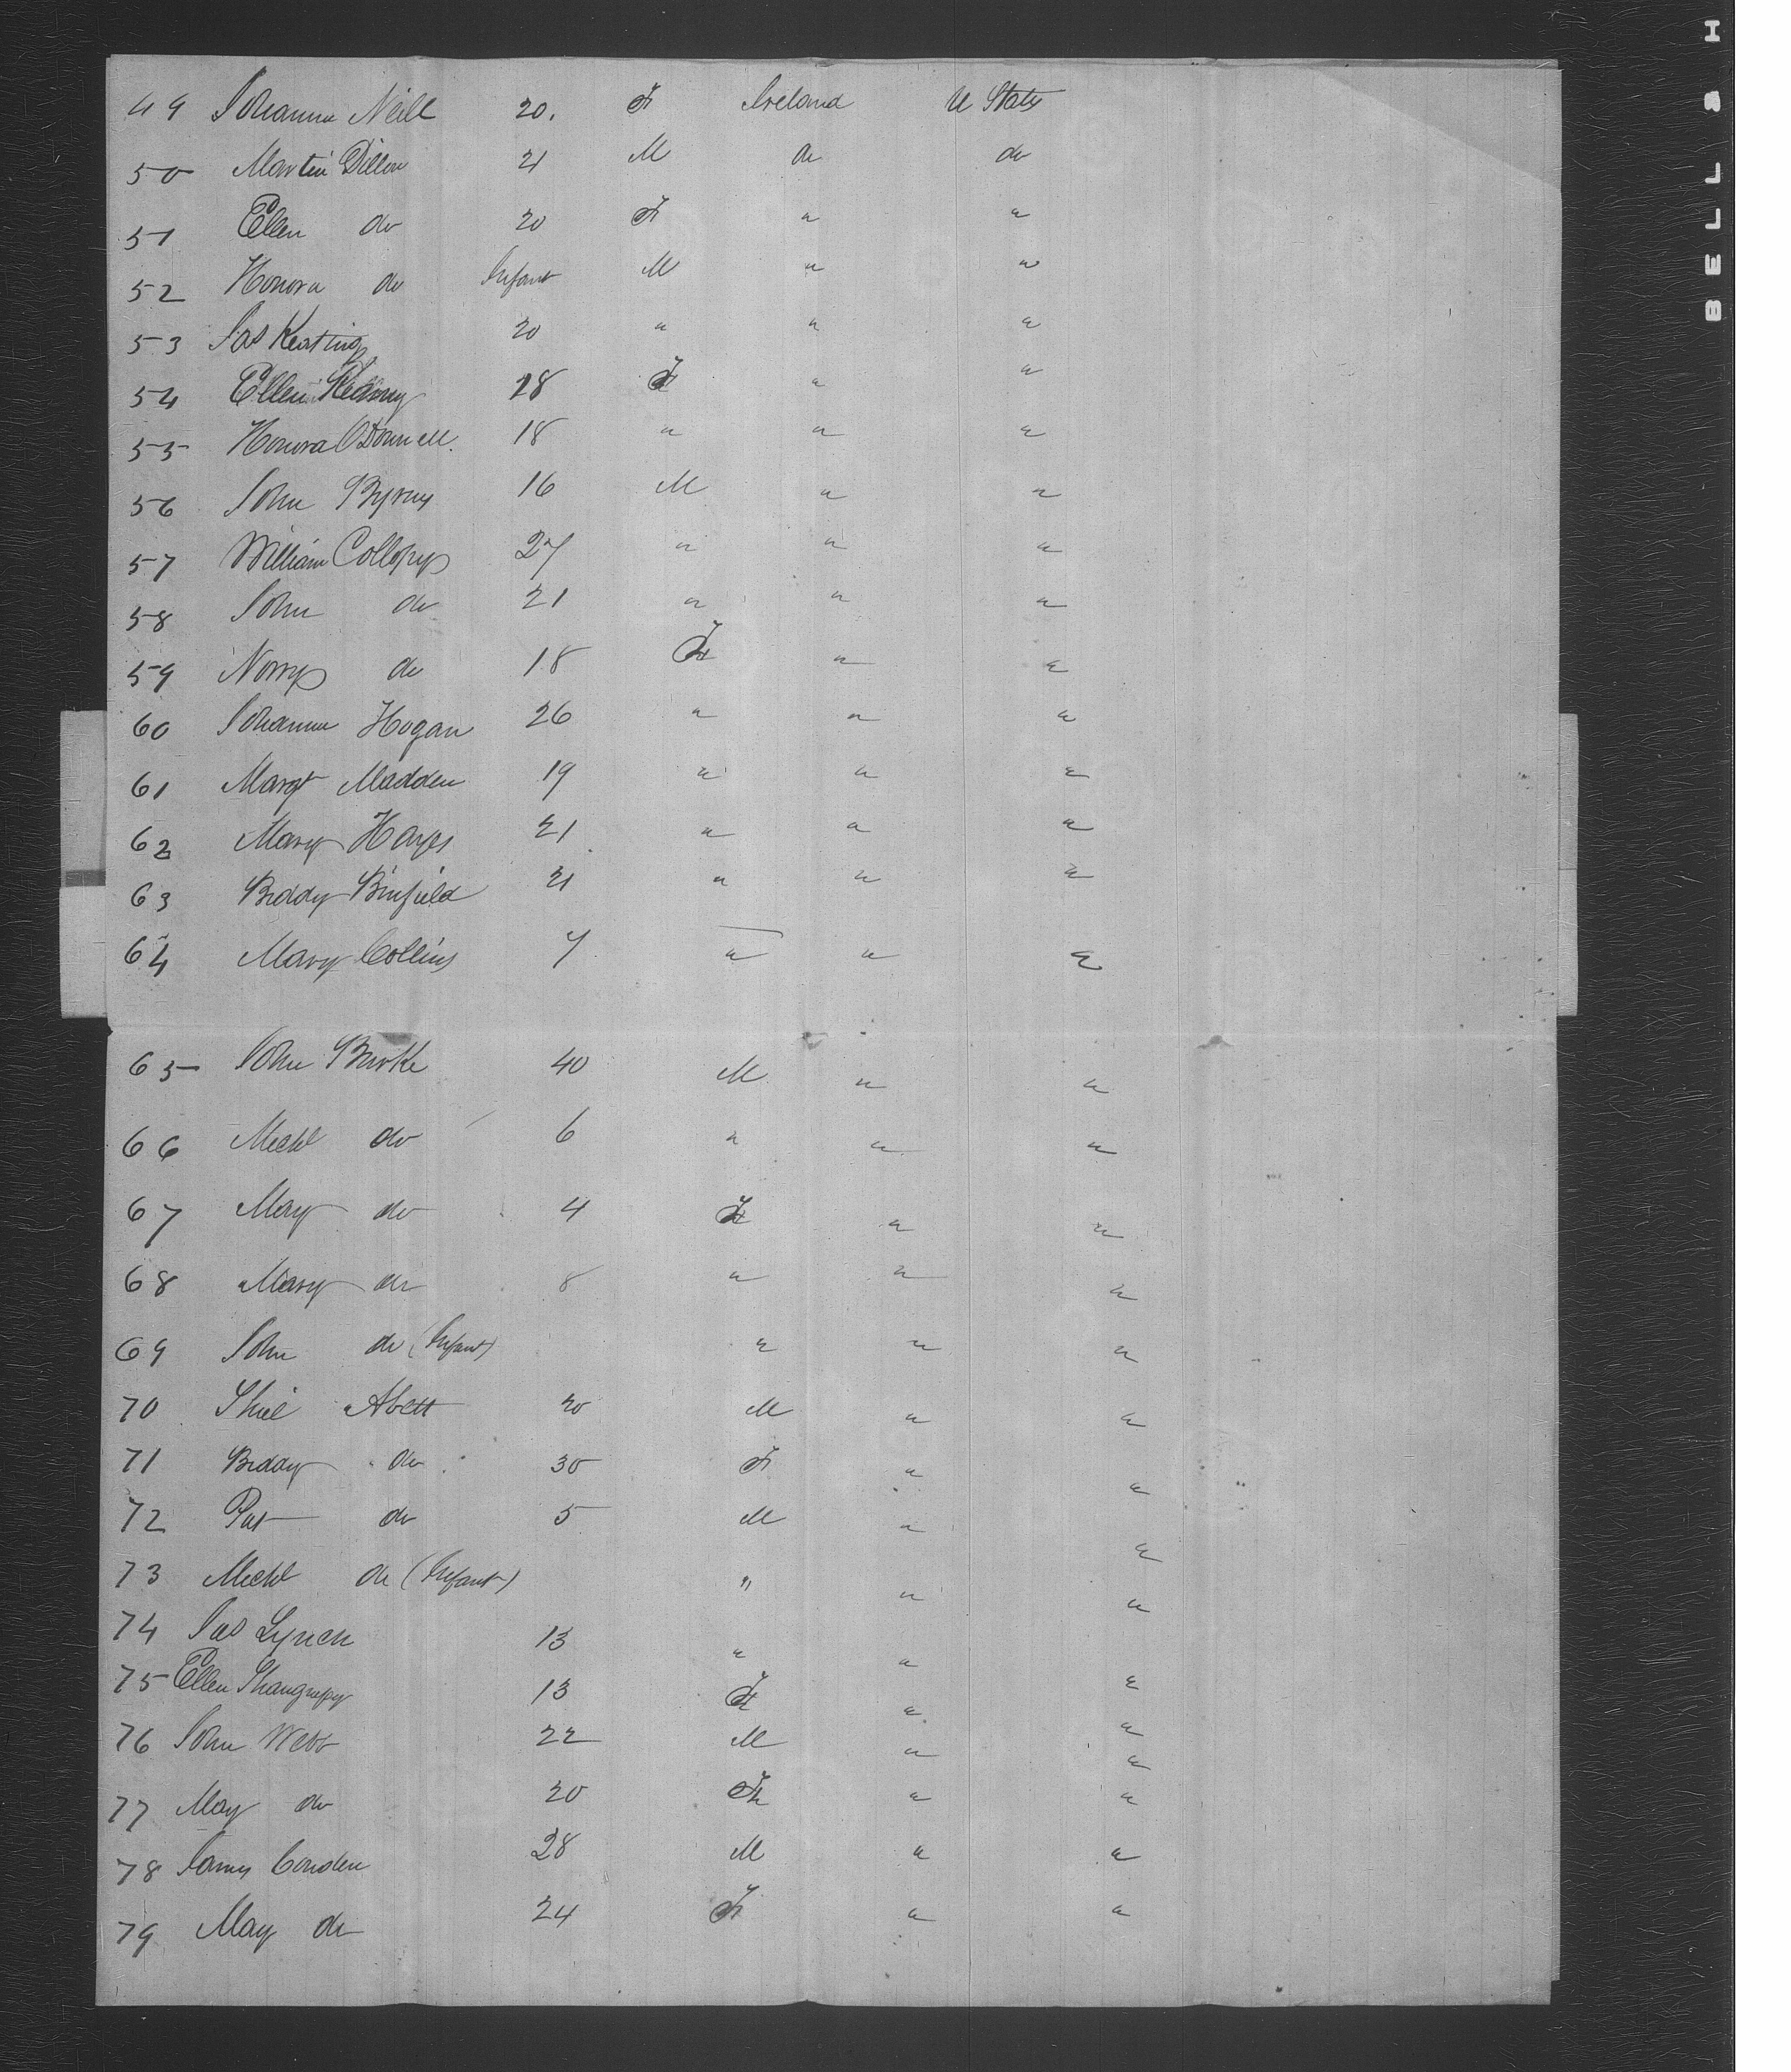 49 Johanna Neill 20. F Ireland U States
50 Martin Dillon 21 M do do
51 Ellen do 20 F " "
52 Honora do Infant M " "
53 Jas Keating 20 " " "
54 Ellen 18 F " "
55 Honora ODonnell. 18 " " "
56 John Byrnes 16 M " "
57 William Collopy 27 " " "
58 John do 21 " " "
59 Norry do 18 F " "
60 Johanna Hogan 26 " " "
61 Margt Madden 19 " " "
62 Mary Hayes 21 " " "
63 Biddy Binfield 21 " " "
64 Mary Collins 7 " " "
65 John Burke 40 M " "
66 Michl do 6 " " "
67 May do 4 F " "
68 Mary do 8 " " "
69 John do (Infant) " " "
70 Abett 20 M " "
71 Biddy do 30 F " "
72 Pat do 5 M " "
73 Michl do (Infant) " " "
74 Jas Lynch 13 " " "
75 Ellen 13 F " "
76 John Webb 22 M " "
77 May do 20 F " "
78 James Conden 28 M " "
79 May do 24 F " "
BELL & H